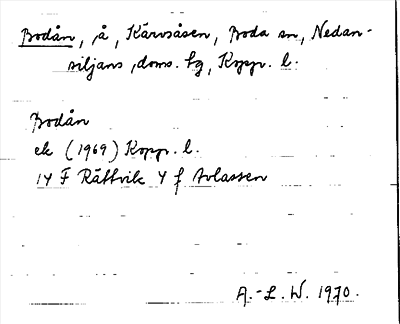 Bodån, å, Kärvsåsen, Boda sn, Nedan-
siljans, doms. hg, Kopp. l.
Bodån
ek (1969) Kopp. l.
14 F Rättvik 4 f Avlassen
A.-L. W. 1970.